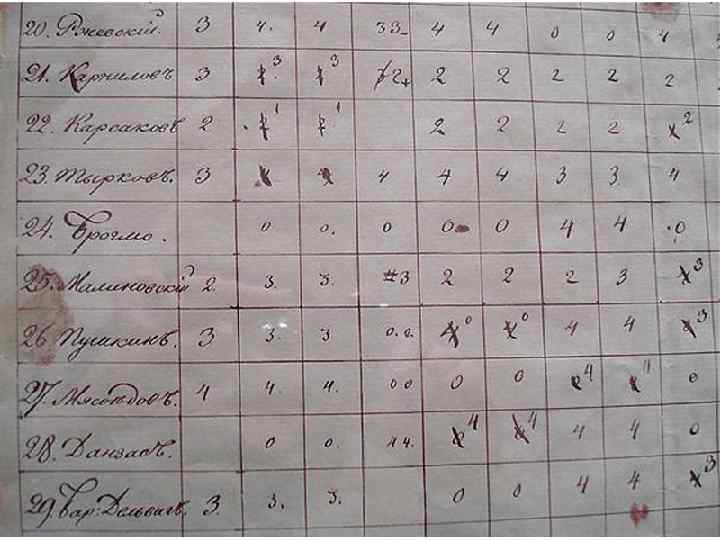 20. Ржевскій. 3 4. 4 33_ 4 4 0 0 4
21. Карниловъ 3 3 3 2 2 2 2 2 2
22. Карсаковъ 2 1 1 2 2 2 2 2
23. Тырковъ. 3 4 4 4 3 3. 4
24. Броглио. 0 0. 0 0 0 4 4 .0
25. Малиновскій 2. 3. 3. 3 2 2 2 3 3
26 Пушкинъ. 3 3. 3 0.0. 0 0 4 4 3
27. Мясоѣдовъ. 4 4. 4. 00 0 0 4 4 0
28. Данзасъ. 0 0. 4. 4 4 4 4 0
29. Бар: Дельвигъ. 3. 3. 3. 0 0 4 4 3